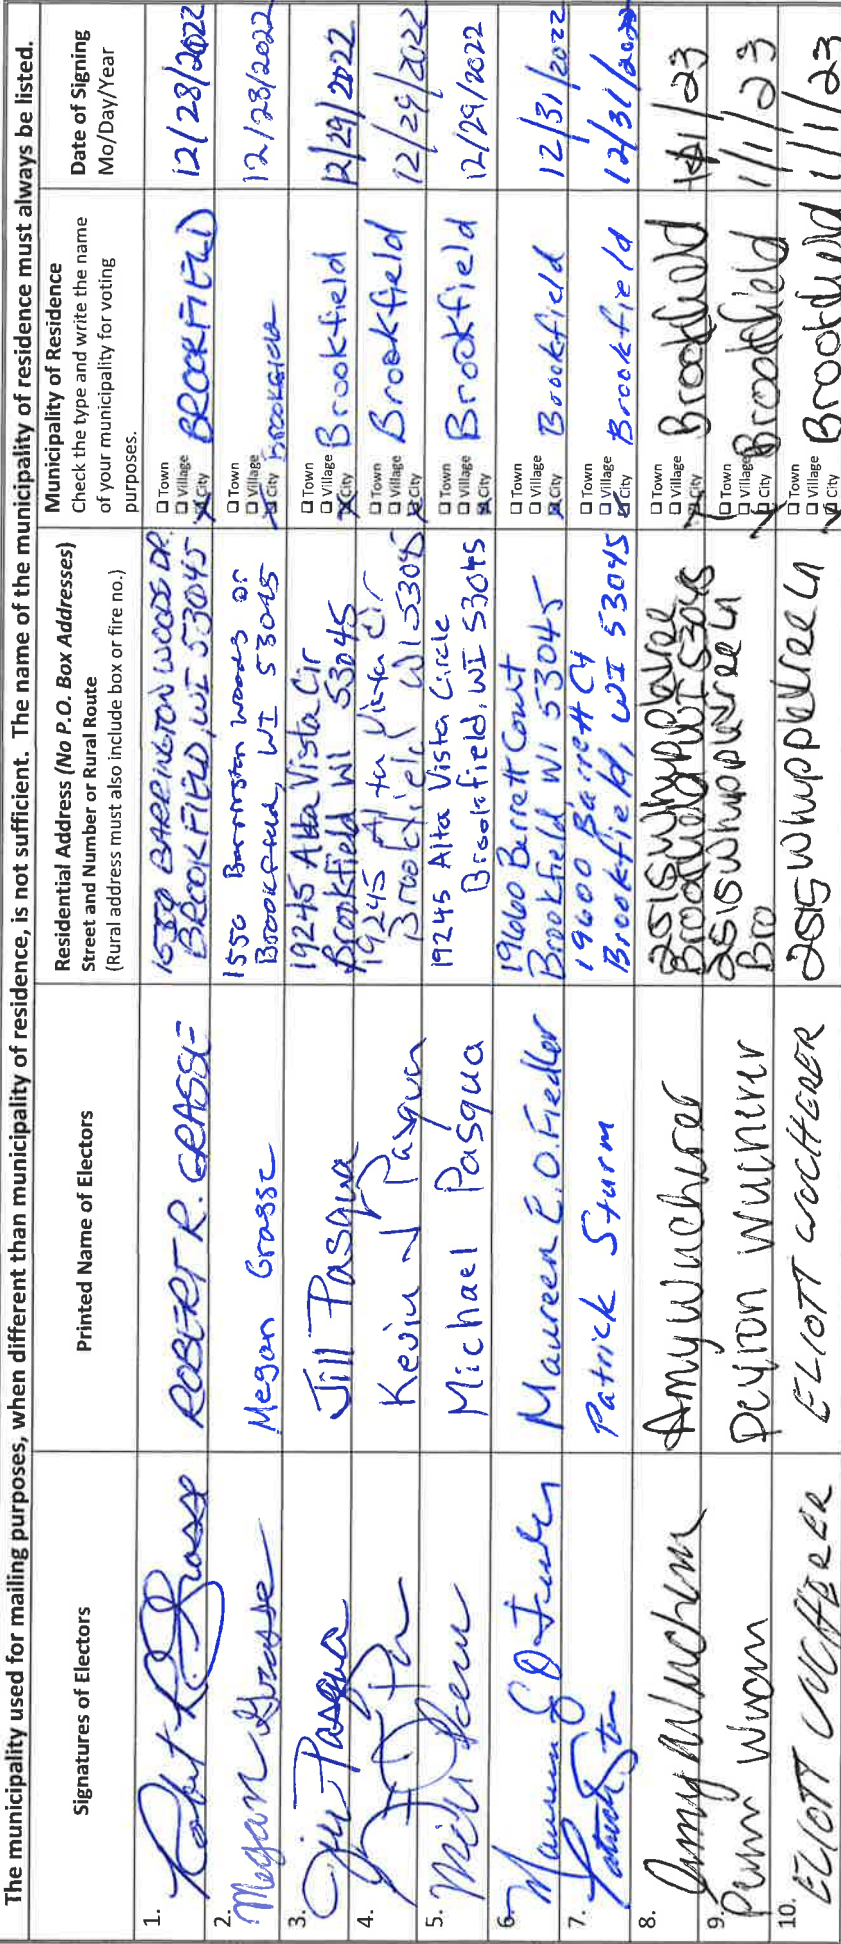 The municipality used for mailing purposes, when different than municipality of residence, is not sufficient. The name of the municipality of residence must always be listed.
Signatures of Electors
Printed Name of Electors
Residential Address (No P.O. Box Addresses)
Street and Number or Rural Route
(Rural address must also include box or fire no.)
Municipality of Residence
Check the type and write the name
of your municipality for voting
purposes.
Date of Signing
Mo/Day/Year
1.
Robert R. Grasse
ROBERT R. GRASSE
1550 BARRINGTON WOODS DR.
BROOKFIELD, WI 53045
Town
Village
City
BROOKFIELD
12/28/2022
2.
Megan Grasse
Megan Grasse
1550 Barrington Woods Dr
Brookfield, WI 53045
Town
Village
City
Brookfield
12/28/2022
3.
Jill Pasqua
Jill Pasqua
19245 Alta Vista Cir
Brookfield WI 53045
Town
Village
City
Brookfield
12/29/2022
4.
Kevin J Pasqua
19245 Alta Vista Cir
Brookfield WI 53045
Town
Village
City
Brookfield
12/29/2022
5.
Michael Pasqua
19245 Alta Vista Circle
Brookfield, WI 53045
Town
Village
City
Brookfield
12/29/2022
6.
Maureen E O Fiedler
Maureen E. O. Fiedler
19660 Barrett Court
Brookfield WI 53045
Town
Village
City
Brookfield
12/31/2022
7.
Patrick Sturm
Patrick Sturm
19600 Barrett Ct
Brookfield, WI 53045
Town
Village
City
Brookfield
12/31/2022
8.
Amy Wucherer
Amy Wucherer
2515 Whippletree
Brookfield WI 53045
Town
Village
City
Brookfield
1/1/23
9.
Peyton Wucherer
2515 Whippletree Ln
Bro
Town
Village
City
Brookfield
1/1/23
10.
ELIOTT WUCHERER
ELIOTT WUCHERER
2515 Whippletree Ln
Town
Village
City
Brookfield
1/1/23